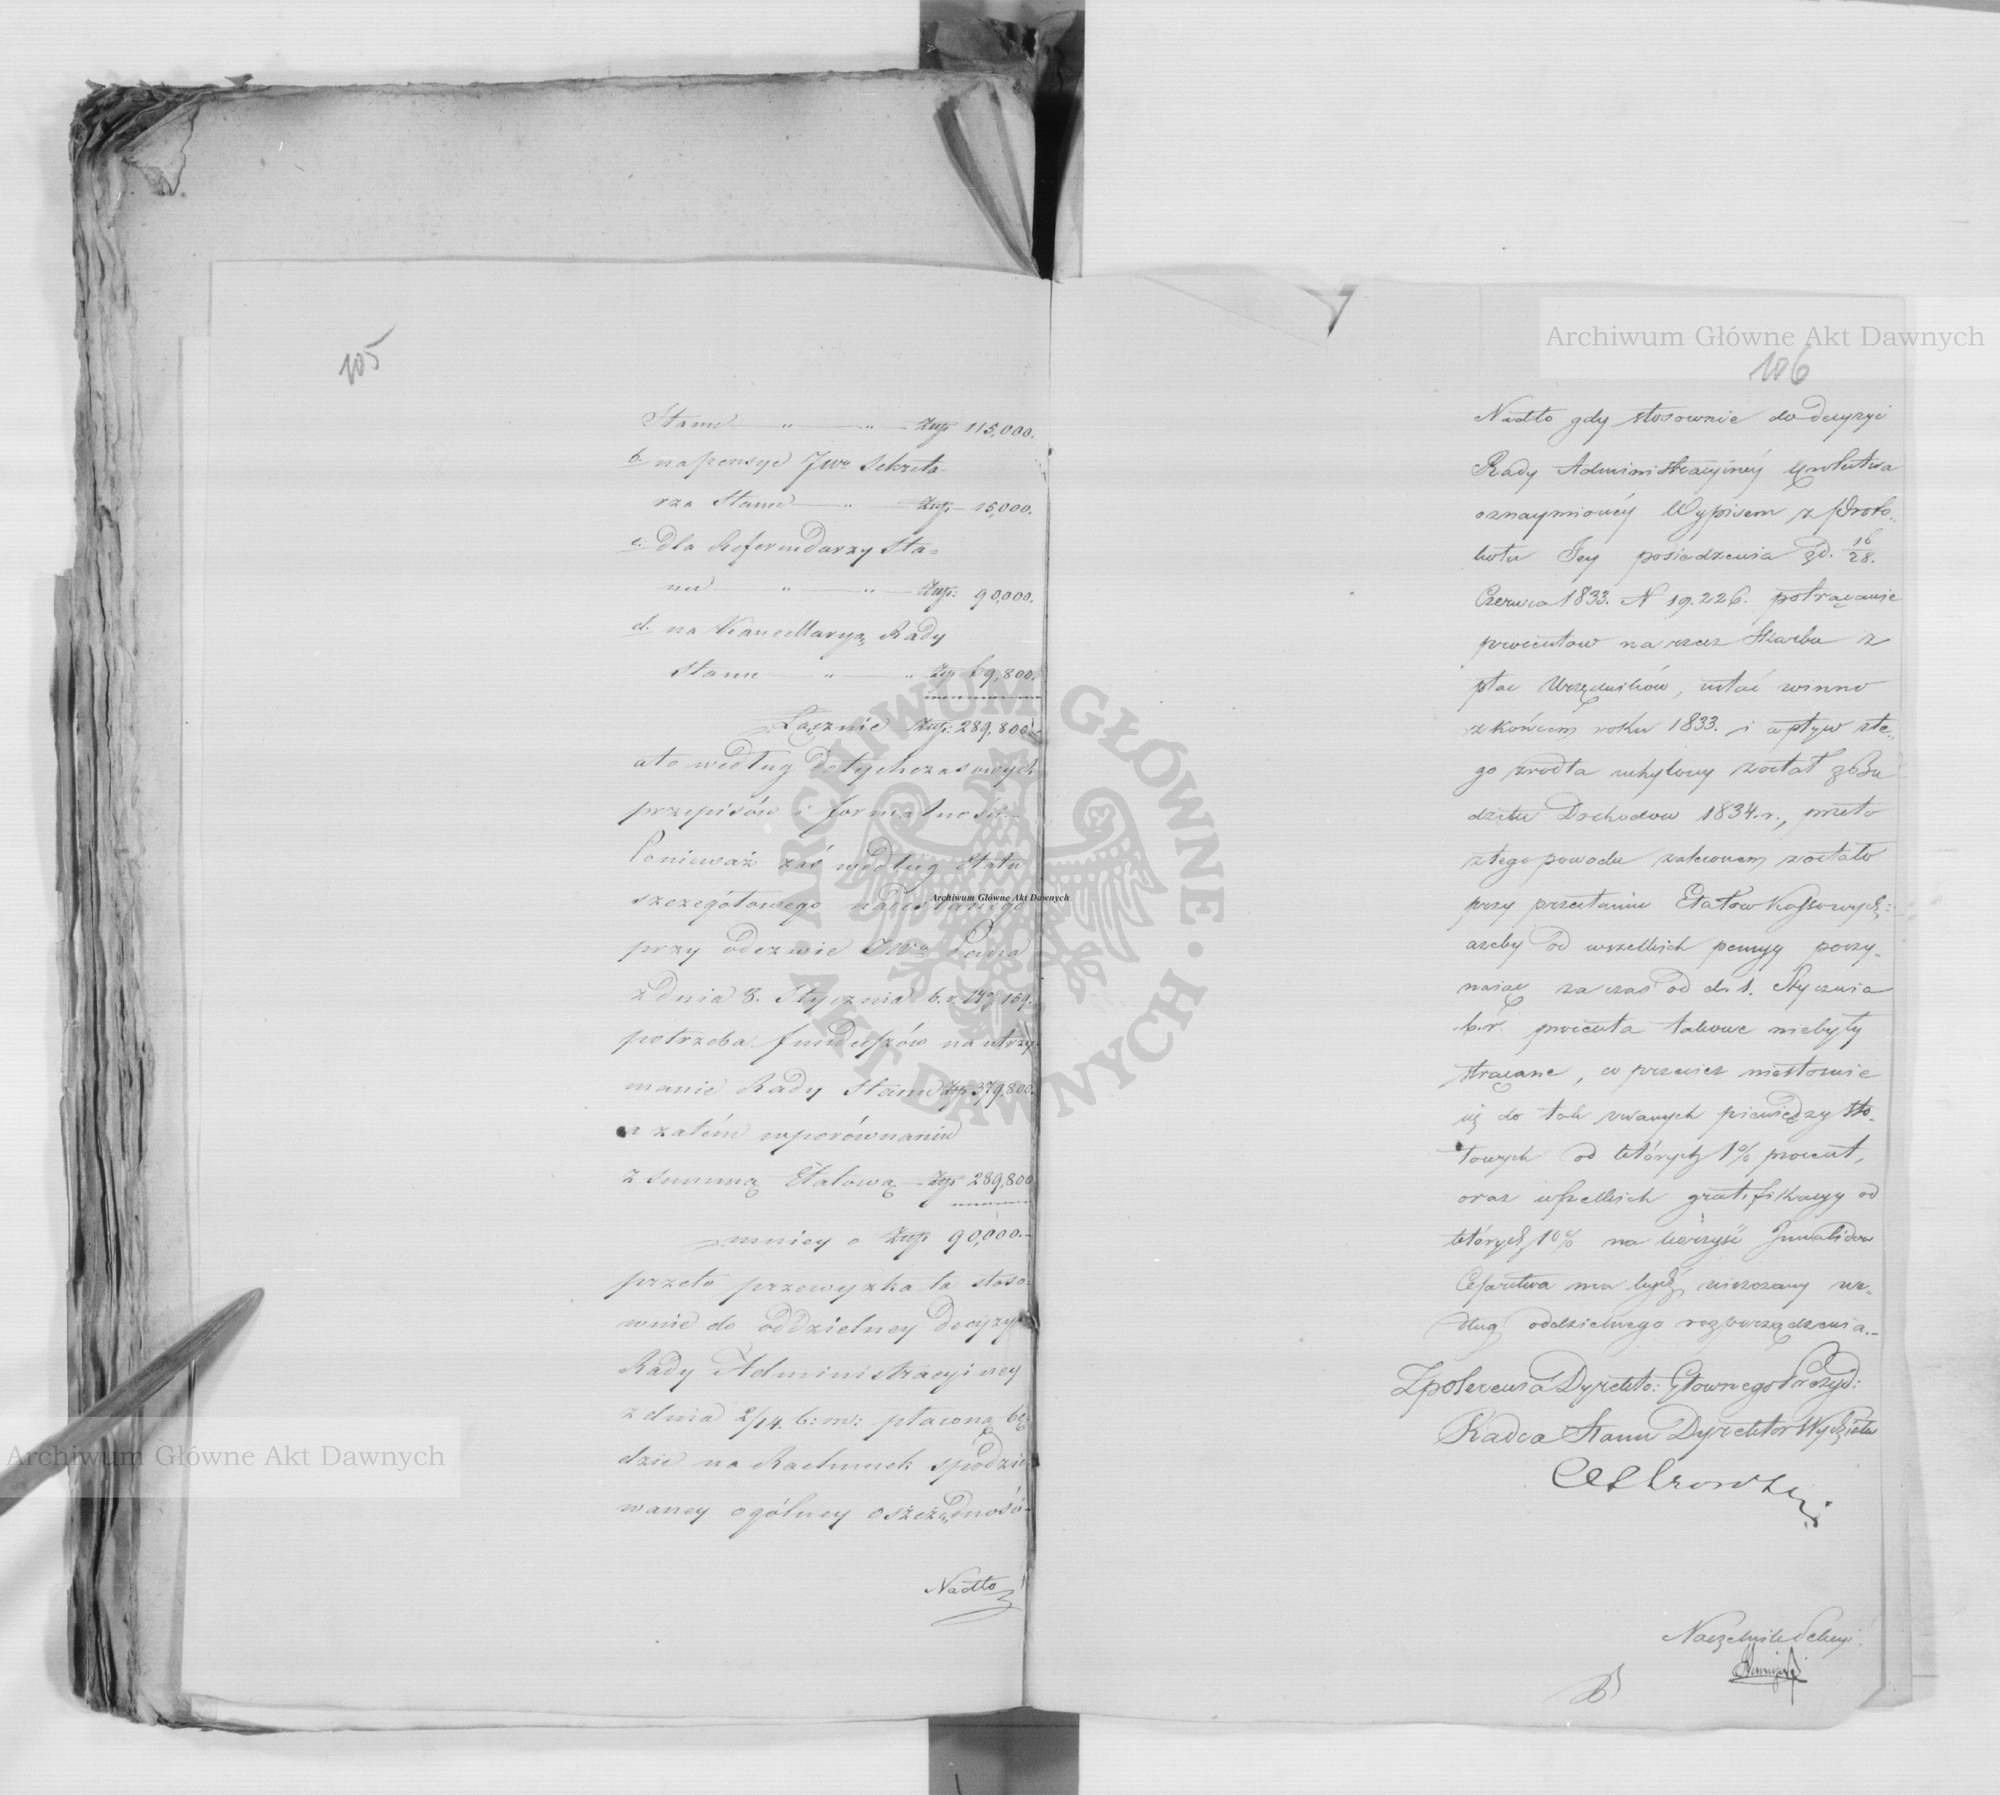 105
Stanu — „ — „ — Złp 115,000.
b. na pensye JWo Sekreta-
rza Stanu — „ — Złp — 15,000.
c. dla Referendarzy Sta-
nu — „ — „ — Złp: 90,000.
d. na Kancellaryą Rady
Stanu — „ — „ Złp 69,800.
Łącznie Złp: 289,800
a to według dotychczasowych
przepisów i formalności.-
Ponieważ zaś według Etatu
szczegółowego nadesłanego
przy odezwie JWo Pana
z dnia 8. Stycznia b. r. No 159.
potrzeba funduszów na utrzy
manie Rady Stanu Złp 379,800.
a zatém w porównaniu
z summą Etatową — Złp 289,800
mniey o Złp 90,000.-
przeto przewyżka ta stoso
wnie do oddzielney decyzyi
Rady Administracyiney
z dnia 2/14. b: m: płaconą bę
dzie na Rachunek spodzie
waney ogólney oszczędności-
Nadto
106
Nadto gdy stosownie do decyzyi
Rady Administracyinéy Królestwa
oznaymionéy Wypisem z Proto-
kołu Jey posiedzenia z d. 16/28.
Czerwca 1833. N 19.226. potrącanie
procentow na rzecz Skarbu z
płac Urzędników, ustać winno
z końcem roku 1833. i wpływ z te-
go zrodła uchylony został z Bu
dżetu Dochodow 1834. r., przeto
z tego powodu zalecono zostało
przy przesłaniu Etatow Kassowych:
azeby od wszelkich pensyy poczy-
naiąc za czas od d. 1. Stycznia
b. r. procenta takowe niebyły
strącane, co przeciez niestosuie
się do tak zwanych pieniędzy sto-
łowych od których 1% procent,
oraz wszelkich gratifikacyy od
których 10% na korzyść Inwalidow
Cesarstwa ma bydź wnoszony we-
dług oddzielnego rozporządzenia.-
Z polecenia Dyrekto: Głownego Prezyd:
Radca Stanu Dyrektor Wydziału
Naczelnik Sekcyi
Archiwum Główne Akt Dawnych
Archiwum Główne Akt Dawnych
Archiwum Główne Akt Dawnych
ARCHIWUM GŁÓWNE · AKT DAWNYCH ·